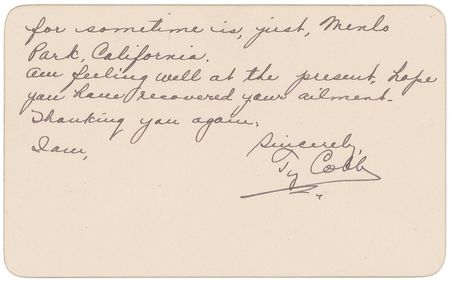 for sometime is, just, Menlo
Park, California.
Am feeling well at the present, hope
you have recovered your ailment.
Thanking you again,
I am,
Sincerely,
Ty Cobb